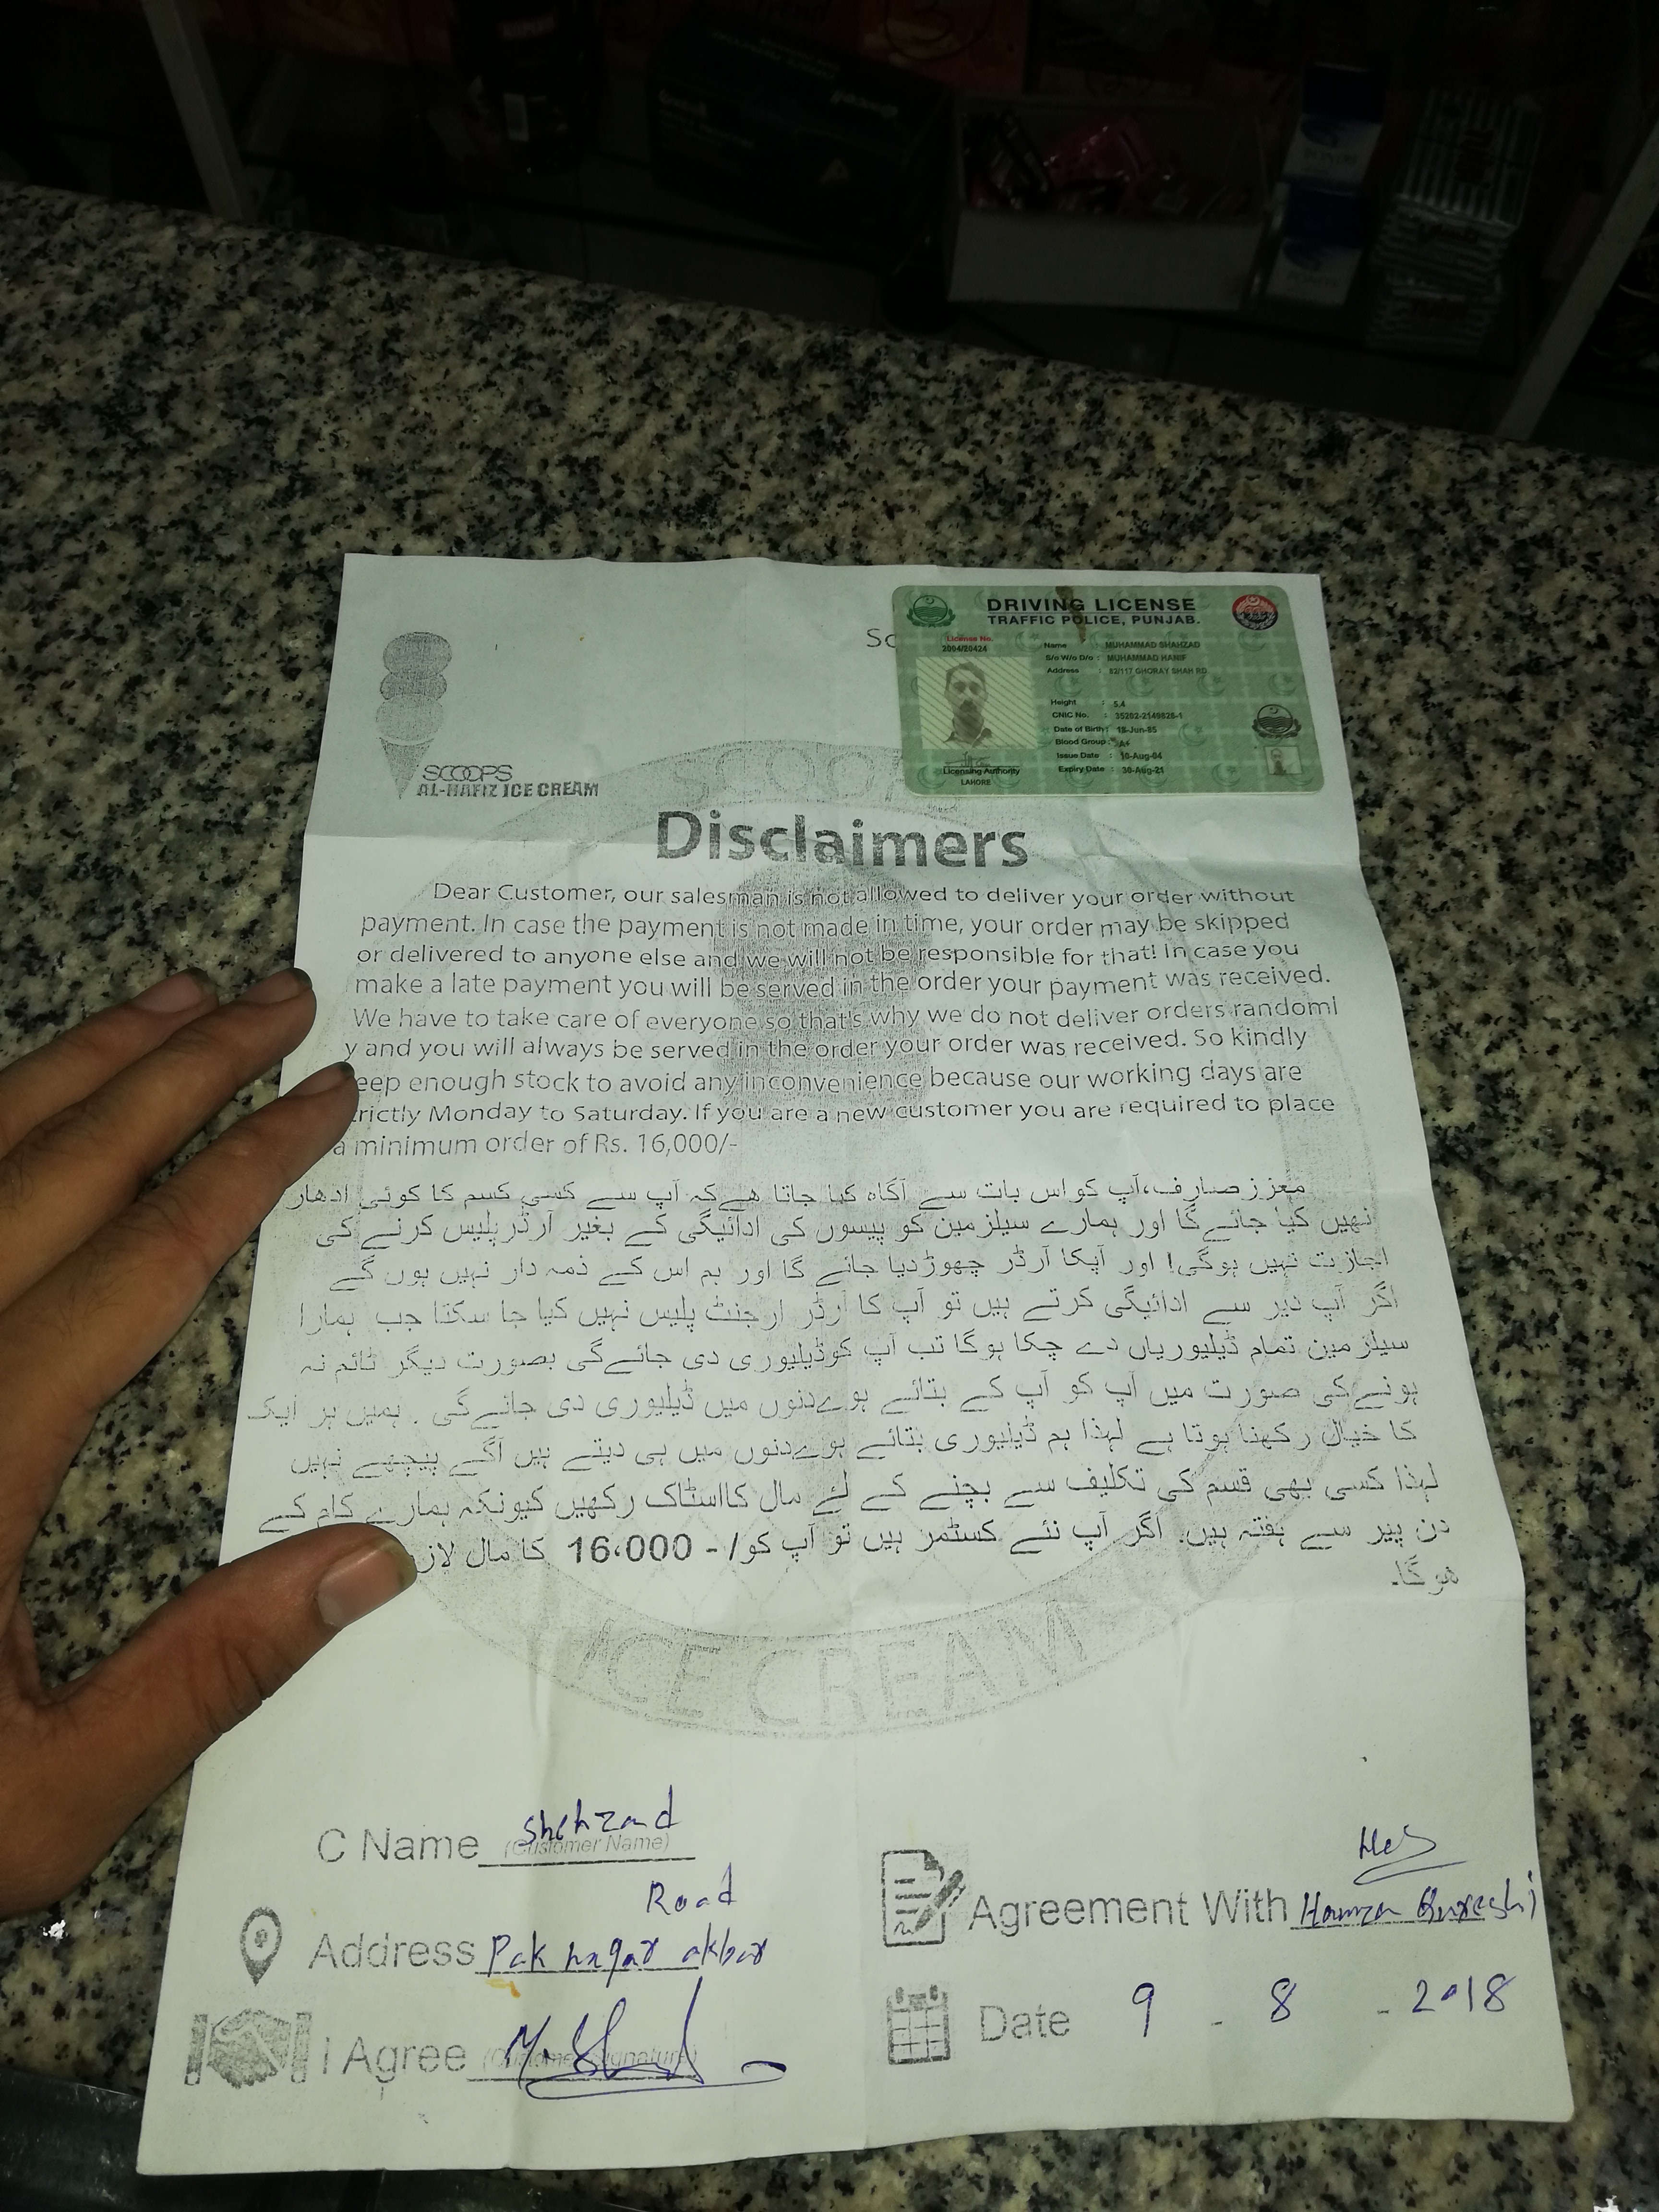 DRIVING LICENSE
TRAFFIC POLICE, PUNJAB.
License No.
2004/20424
Name MUHAMMAD SHAHZAD
S/o W/o D/o : MUHAMMAD HANIF
Address : 82/117 GHORAY SHAH RD
Height : 5.4
CNIC No. : 35202-2149826-1
Date of Birth : 18-Jun-85
Blood Group : A+
Issue Date : 10-Aug-04
Expiry Date : 30-Aug-21
Licensing Authority
LAHORE
Sc
SCOOPS
AL-HAFIZ ICE CREAM
SCOOP
Disclaimers
Dear Customer, our salesman is not allowed to deliver your order without
payment. In case the payment is not made in time, your order may be skipped
or delivered to anyone else and we will not be responsible for that! In case you
make a late payment you will be served in the order your payment was received.
We have to take care of everyone so that's why we do not deliver orders randoml
y and you will always be served in the order your order was received. So kindly
eep enough stock to avoid any inconvenience because our working days are
rictly Monday to Saturday. If you are a new customer you are required to place
a minimum order of Rs. 16,000/-
معزز صارف،آپ کواس بات سے آگاہ کیا جاتا ھےکہ آپ سے کسی کسم کا کوئی ادھار
نھیں کیا جائےگا اور ہمارے سیلزمین کو پیسوں کی ادائیگی کے بغیر آرڈرپلیس کرنے کی
اجازت نہیں ہوگی! اور آپکا آرڈر چھوڑدیا جائے گا اور ہم اس کے ذمہ دار نہیں ہوں گے
اگر آپ دیر سے ادائیگی کرتے ہیں تو آپ کا آرڈر ارجنٹ پلیس نہیں کیا جا سکتا جب ہمارا
سیلزمین تمام ڈیلیوریاں دے چکا ہوگا تب آپ کوڈیلیوری دی جائےگی بصورت دیگر ٹائم نہ
ہونےکی صورت میں آپ کو آپ کے بتائے ہوےدنوں میں ڈیلیوری دی جائےگی . ہمیں ہر ایک
کا خیال رکھنا ہوتا ہے لہذا ہم ڈیلیوری بتائے ہوےدنوں میں ہی دیتے ہیں آگے پیچھے نہیں
لہذا کسی بھی قسم کی تکلیف سے بچنے کے لئے مال کااسٹاک رکھیں کیونکہ ہمارے کام کے
دن پیر سے ہفتہ ہیں. اگر آپ نئے کسٹمر ہیں تو آپ کو/- 16،000 کا مال لاز
ھوگا۔
ICE CREAM
C Name Shehzad
(Customer Name)
Road
Address Pak nagar akbar
I Agree
(Customer Signature)
Agreement With Hamza Qureshi
Date 9 - 8 - 2018